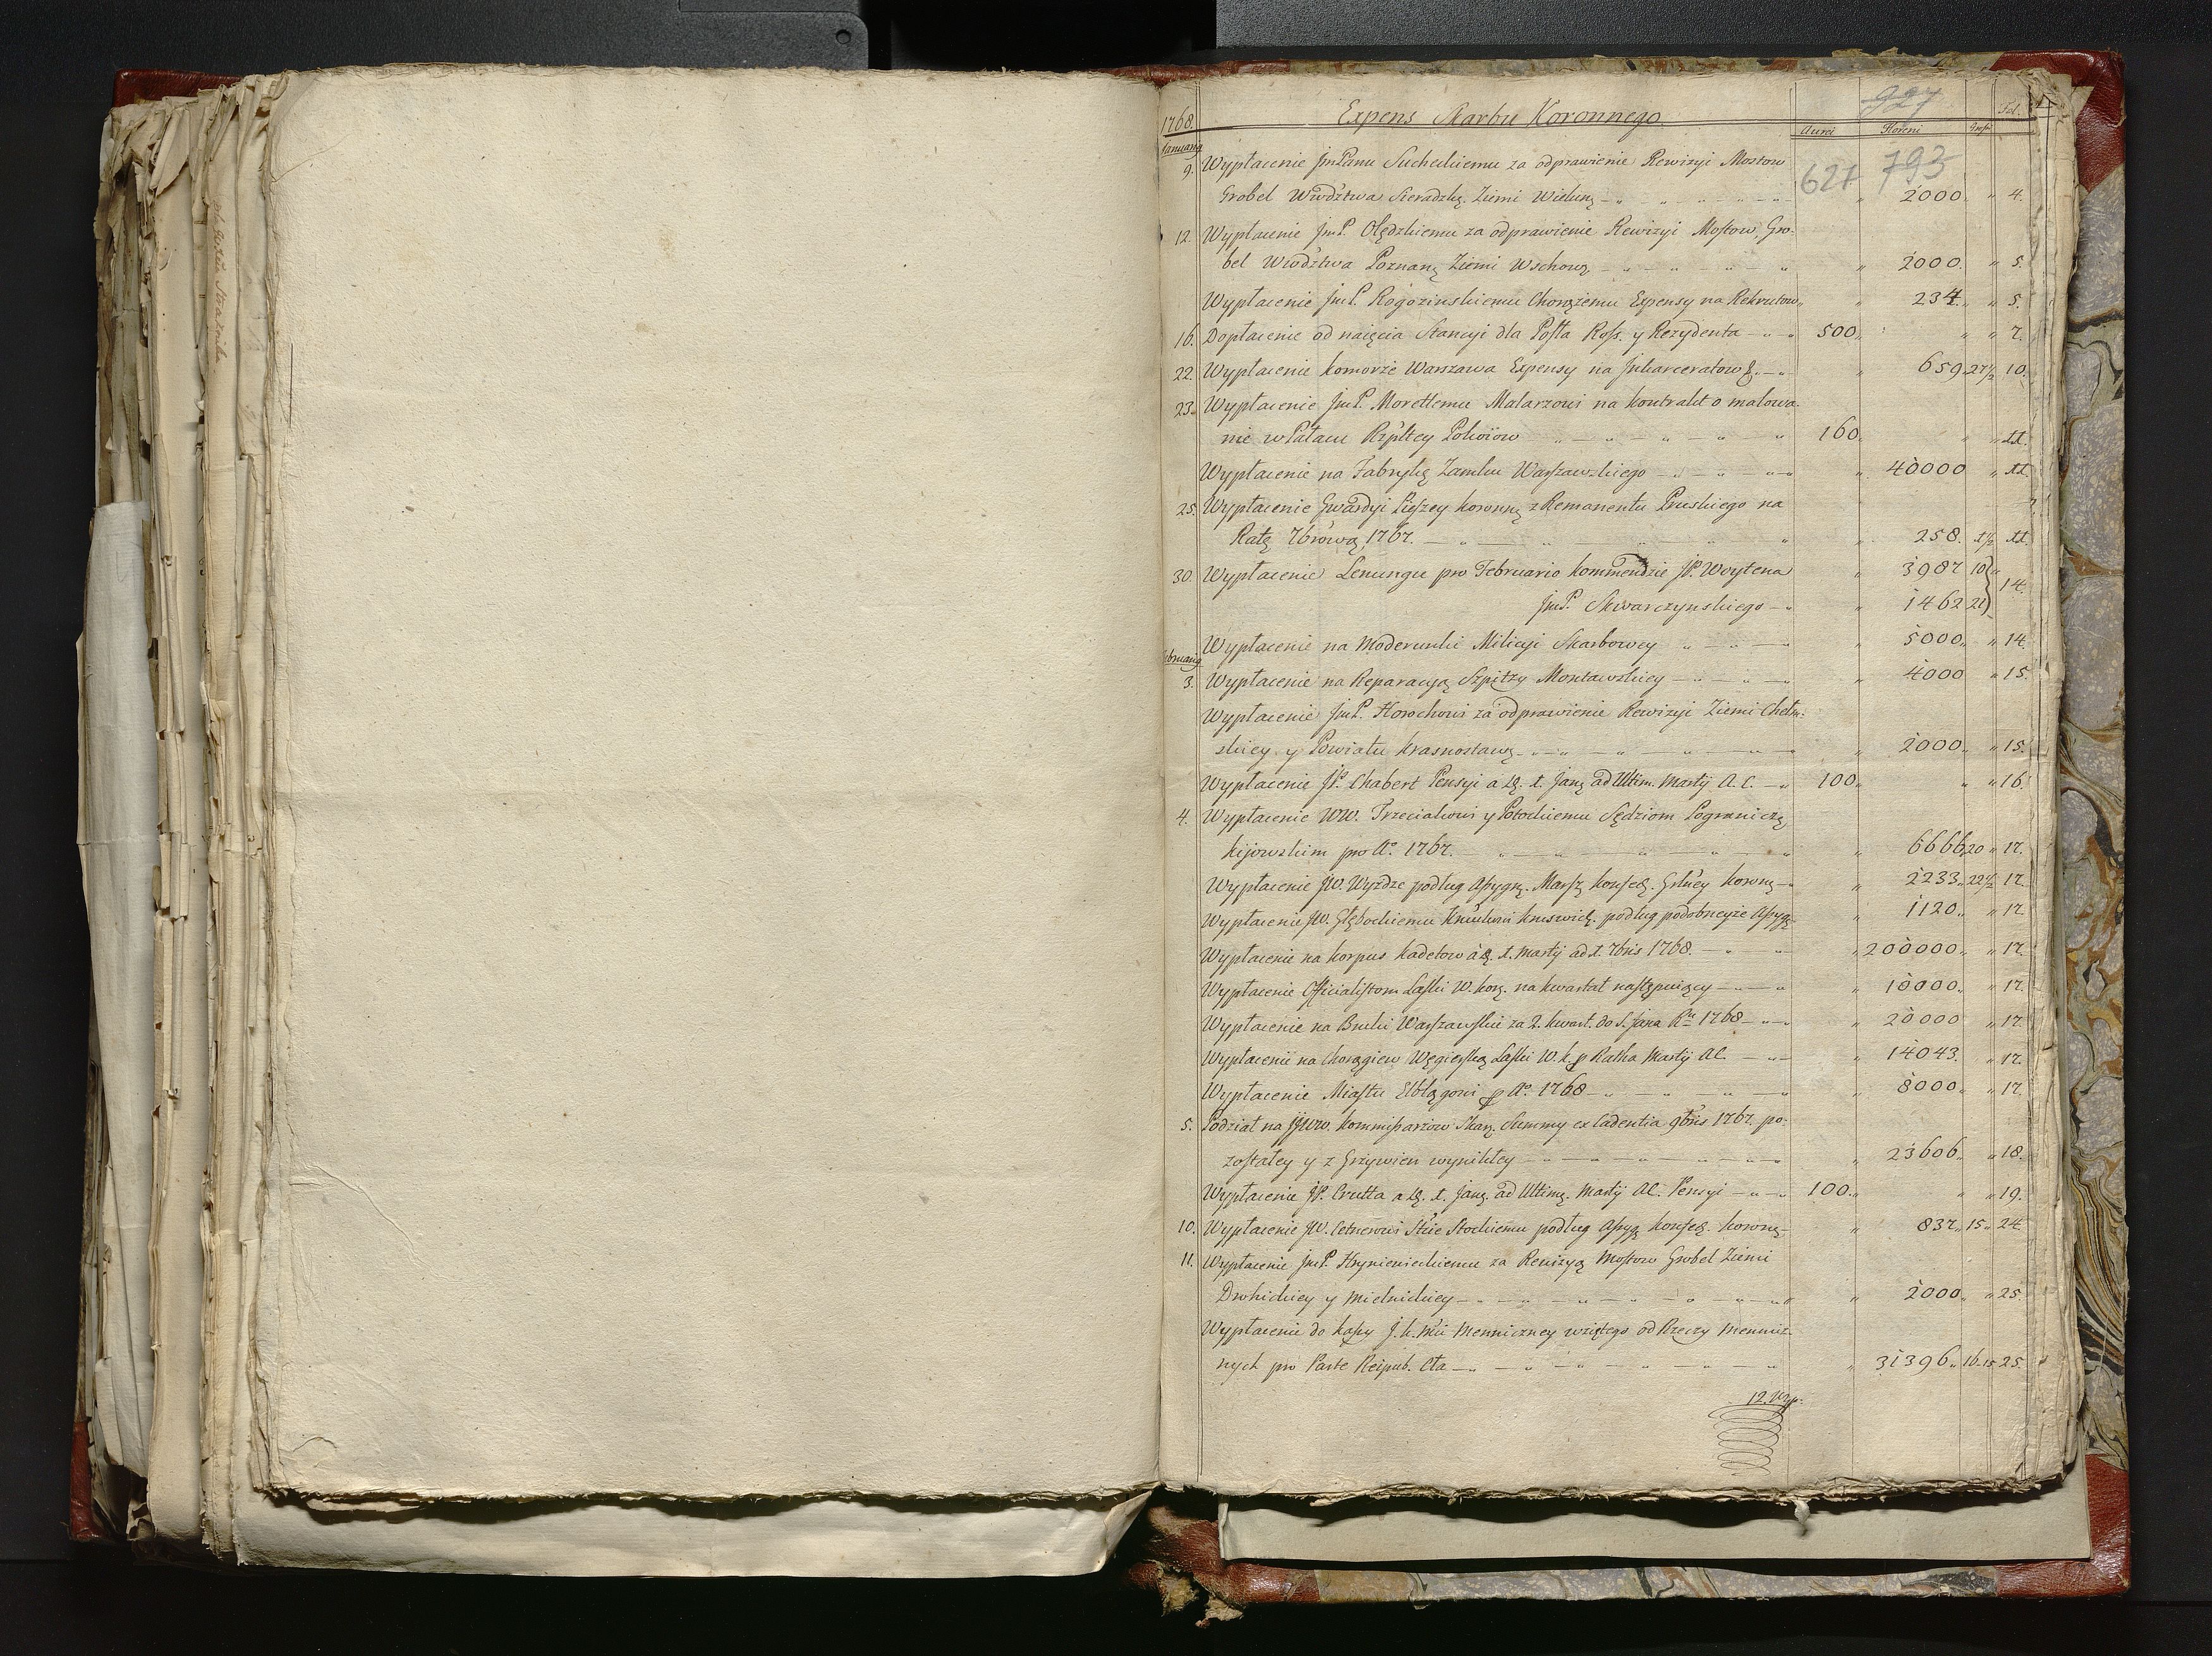 927
1768. Expens Skarbu Koronnego
Aurei Floreni Fol.
621 793
Januarÿ
9. Wypłacenie JmPanu Sucheckiemu za odprawienie Rewizyi Mostow
Grobel Wwdztwa Sieradzkę. Ziemi Wieluńę 2000. 4.
12. Wypłacenie JmP. Olędzkiemu za odprawienie Rewizyi Mostow, Gro-
bel Wwdztwa Poznanę Ziemi Wschowę 2000. 5.
Wypłacenie JmP. Rogozinskiemu Chorążemu Expensy na Rekrutow 234. 5.
16. Dopłacenie od naięcia Stancyi dla Posła Ross. y Rezydenta 500. 7.
22. Wypłacenie komorze Warszawa Expensy na Inkarceratow 659. 27½ 10.
23. Wypłacenie JmP. Morettemu Malarzowi na kontrakt o malowa-
nie w Pałacu Rzpltey Pokoiow 160. 11.
Wypłacenie na Fabrykę Zamku Warszawskiego 40000 11.
25. Wypłacenie Gwardyi Pieszey koronnę z Remanentu Pruskiego na
Ratę 7brową 1767. 258. 1½ 11.
30. Wypłacenie Lenungu pro Februario kommendzie JP. Woytena 3987 10
JmP. Skwarczynskiego 1462 21 14.
Wypłacenie na Moderunki Milicyi Skarbowey 5000. 14.
Februarÿ
3. Wypłacenie na Reparacyą Szpitzy Montawskiey 4000 15.
Wypłacenie JmP. Horochowi za odprawienie Rewizyi Ziemi Chełm-
skiey y Powiatu Krasnostawę 2000. 15.
Wypłacenie JP. Chabert Pensyi a 1. Janę ad Ultim. Martij A. C. 100. 16.
4. Wypłacenie WW. Trzeciakowi y Potockiemu Sędziom Pograniczę
kijowskim pro Aº. 1767. 6666. 20 17.
Wypłacenie JW. Wyżdze podług Assygnę. Marszę konfedę. Gnlney koronę 2233. 22½ 17.
Wypłacenie JW. Głębockiemu kruszwicę. podług podobneyże Assygę 1120. 17.
Wypłacenie na korpus kadetow 1. Martij ad 1. 7bris 1768. 200000. 17.
Wypłacenie Officialistom Laski W. korę. na kwartał następuiący 10000. 17.
Wypłacenie na Bruki Warszawskie za 2. kwart. do S. Jana Rᵘ 1768 20000 17.
Wypłacenie na Chorągiew Węgierską Laski W. k. p Ratha Martij AC. 14043. 17.
Wypłacenie Miastu Elblągowi p Aº. 1768 8000. 17.
5. Podział na JJWW. kommissarzow Skarę. Summy ex Cadentia 9bris 1767. po-
zostałey y z Grzywien wynikłey 23606. 18.
Wypłacenie JP. Crutta a 1. Janę. ad Ultimę. Martij AC. Pensyi 100. 19.
10. Wypłacenie JW. Cetnerowi Stockiemu podług Assygę konfedę. koronę 837. 15. 24.
11. Wypłacenie JmP. Hryniewieckiemu za Rewizyą Mostow Grobel Ziemi
Drohickiey y Mielnickiey 2000. 25.
Wypłacenie do kassy J. k. Mci Menniczney wziętego od Rzeczy Mennicz-
nych pro Parte Reipub. Cta 31396. 16. 15 25.
12. Wyp.